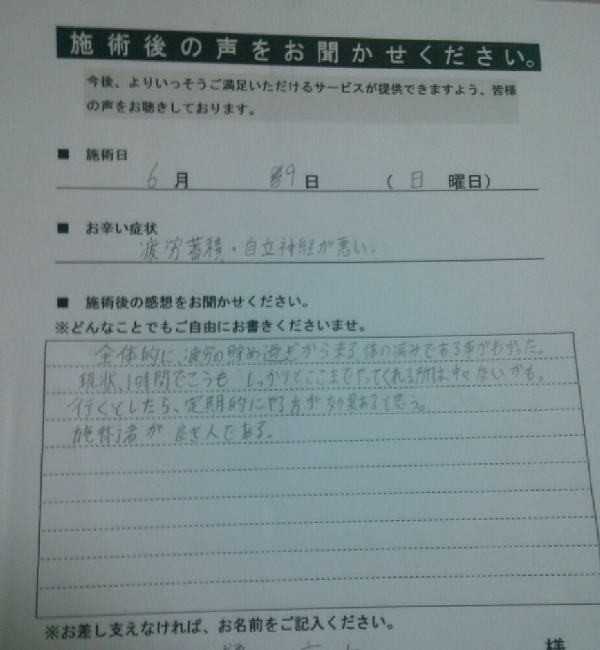 施術後の声をお聞かせください。
今後、よりいっそうご満足いただけるサービスが提供できますよう、皆様
の声をお聴きしております。
■ 施術日
6月 9日 (日 曜日)
■ お辛い症状
疲労蓄積・自立神経が悪い.
■ 施術後の感想をお聞かせください。
※どんなことでもご自由にお書きくださいませ。
全体的に、疲労の貯め過ぎから来る体の痛みである事がわかった。
現状、1時間でこうも しっかりとここまでやってくれる所は、中々ないかも。
行くとしたら、定期的にやる方が効果あると思う。
施術者が良き人である。
※お差し支えなければ、お名前をご記入ください。
様